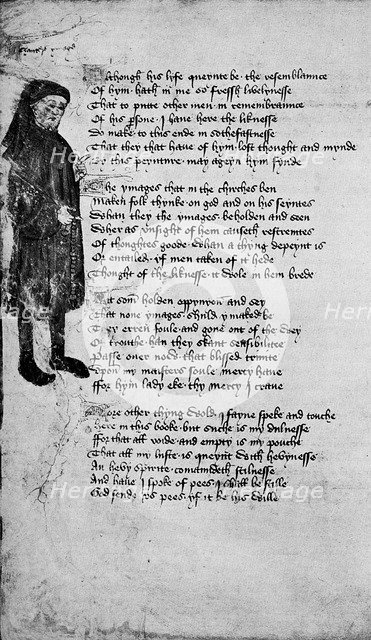 Although his lyfe queynte be the resemblaunce
Of hym hath in me so fressh lyvelynesse
That to putte other men in remembraunce
Of his persone I have here the liknesse
Do make to this ende in sothfastnesse
That they that have of hym lost thought and mynde
By this peynture may ageyn hym fynde
The ymages that in the chirches ben
Maken folk thynke on god and on his seyntes
Whan they the ymages beholden and seen
Wher as unsight of hem causeth restreyntes
Of thoughtes goode Whan a thyng depeynt is
Or entailed if men taken of it hede
Thoght of the liknesse it wole in hem brede
Yit som holden oppynyon and sey
That none ymages shuld ymaked be
They erren foule and gone out of the wey
Of trouthe han they skant sensibilitee
Passe over now that blissed trinite
Upon my maisters soule mercy have
ffor hym lady eke thy mercy I crave
More other thyng wolde I fayne speke and touche
here in this booke but suche is my dulnesse
ffor that all voide and empty is my pouche
That all my luste is queynt with hevynesse
An hevy spirite comaundeth stilnesse
And have I spoke of pees I shall be stille
God sende us pees yf it be his wille
Heritage
Heritage
Heritage